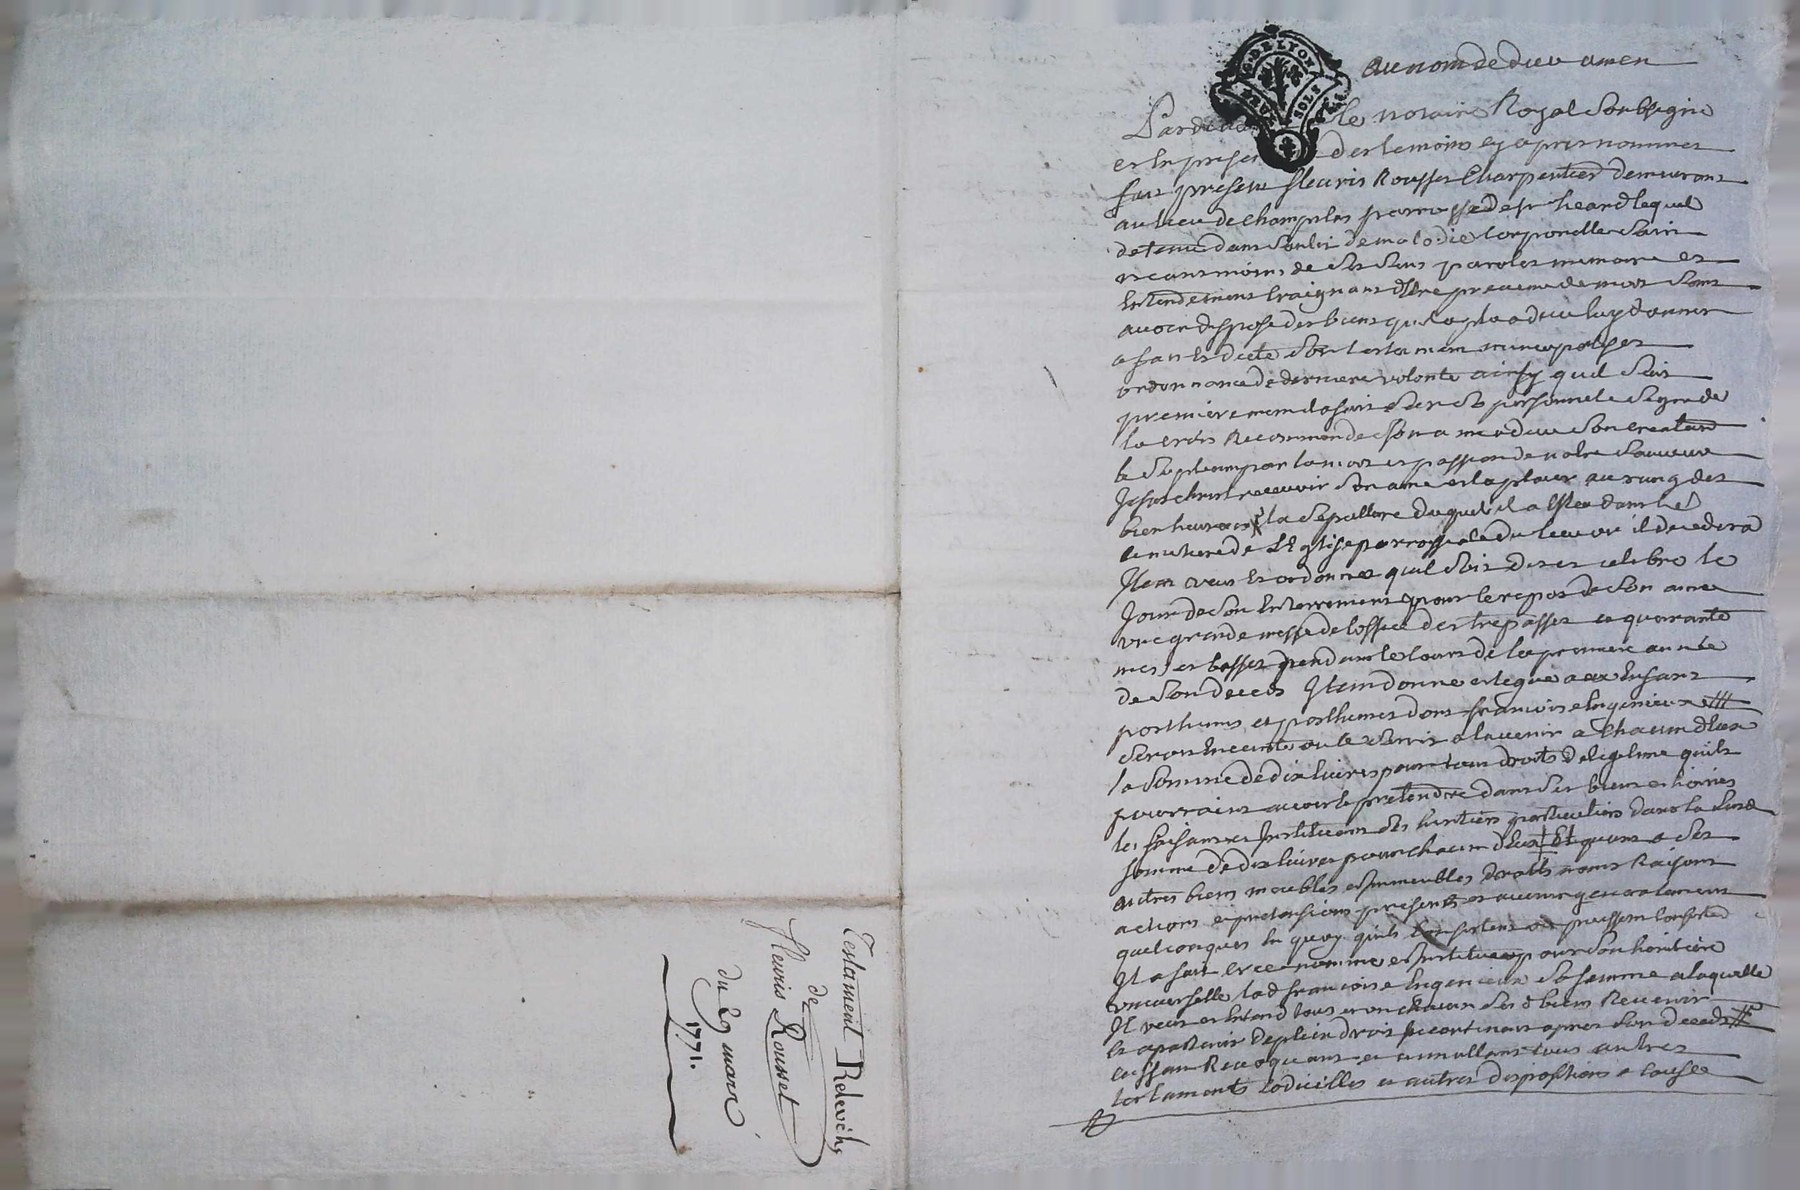 au nom de dieu amen
G. DE LYON
SOLS
Pardevant le notaire Royal Soubsigné
et en presence des temoins cy apres nommes
fut present fleuris Rousset Charpentier demeurant
au lieu de Champlas parroisse de st heand lequel
detenu dans son lit de maladie corporelle sain
neantmoins de ses sens parolle memoire et
Entendement Craignant dEtre prevenu de mort sans
avoir dispose des biens quil a plu a dieu luy donner
a fait Et dicté son testament nuncupatif et
ordonnance de derniere volonté ainsy quil suit
premierement a fait sur sa personne le signe de
la croix Recommande son ame a dieu son createur
le supliant par la mort et passion de notre sauveur
Jesus christ recevoir son ame et la placer au rang des
bien heureux la sepulture duquel il a Eslea dans le
cimetiere de LEglise parroissiale du lieu ou il decedera
Item veut Et ordonne quil soit dit et celebré le
Jour de son Enterrement pour le repos de son ame
une grande messe de loffice des trepasses et quarante
messes basses pendant le cours de la premiere année
de son deceds Item donne et legue aux Enfant
posthume et posthumes dont francoise Engenieux
seroit Enceinte ou le seroit a lavenir a Chacun dEux
la somme de dix livres pour tous droits de legitime quils
pourroient avoir et pretendre dans ses biens et hoiries
les faisant et Instituant ses heritiers particuliers dans la susd
somme de dix livres pour chacun dEux Et quant a ses
autres biens meubles et immeubles droits noms Raisons
actions et pretensions presents et avenir generalement
quelconques En quoy quils Consistent ou puissent consister
Il a fait cree nomme et institue pour son heritiere
universelle lad francoise Engenieux sa femme a laquelle
Il veut et Entend tous et un chacun ses d biens Revenir
Et apartenir de plein droit Incontinant apres son deceds
cassant Revoquant et annullant tous autres
testaments codicilles et autres dispositions a cause
Testament Redevehs
de
fleuris Rousset
du 29 mars
1771.